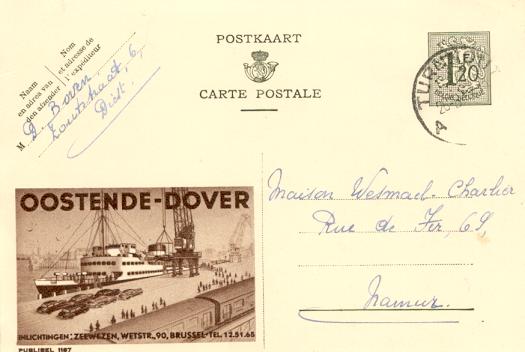 POSTKAART
CARTE POSTALE
Naam
en adres van
den afzender
Nom
et adresse de
l'expéditeur
M
D. Boven
Zoutstraat, 6,
Diest.
1F20
TURN
Maison Wesmael-Charlier
Rue de Fer, 69,
Namur.
OOSTENDE-DOVER
INLICHTINGEN: ZEEWEZEN, WETSTR., 90, BRUSSEL-TEL. 12.51.65
PUBLIBEL 1187